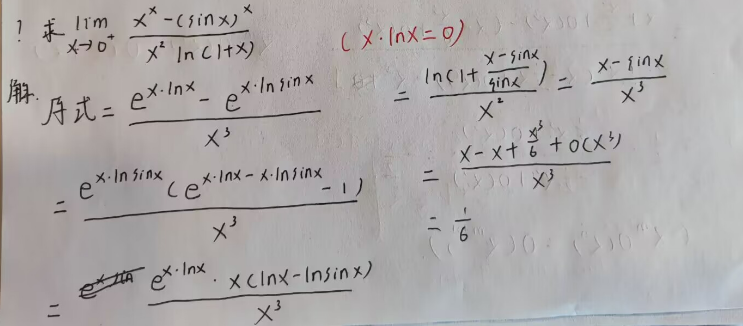 ? 求 lim x→0⁺ (x^x - (sinx)^x) / (x² ln(1+x)) (x·lnx=0)
解. 原式 = (e^(x·lnx) - e^(x·lnsinx)) / x³
= e^(x·lnsinx) (e^(x·lnx - x·lnsinx) - 1) / x³
= e^(x·lnx) · x(lnx - lnsinx) / x³
= ln(1 + (x-sinx)/sinx) / x² = (x-sinx) / x³
= (x - x + x³/6 + o(x³)) / x³
= 1/6